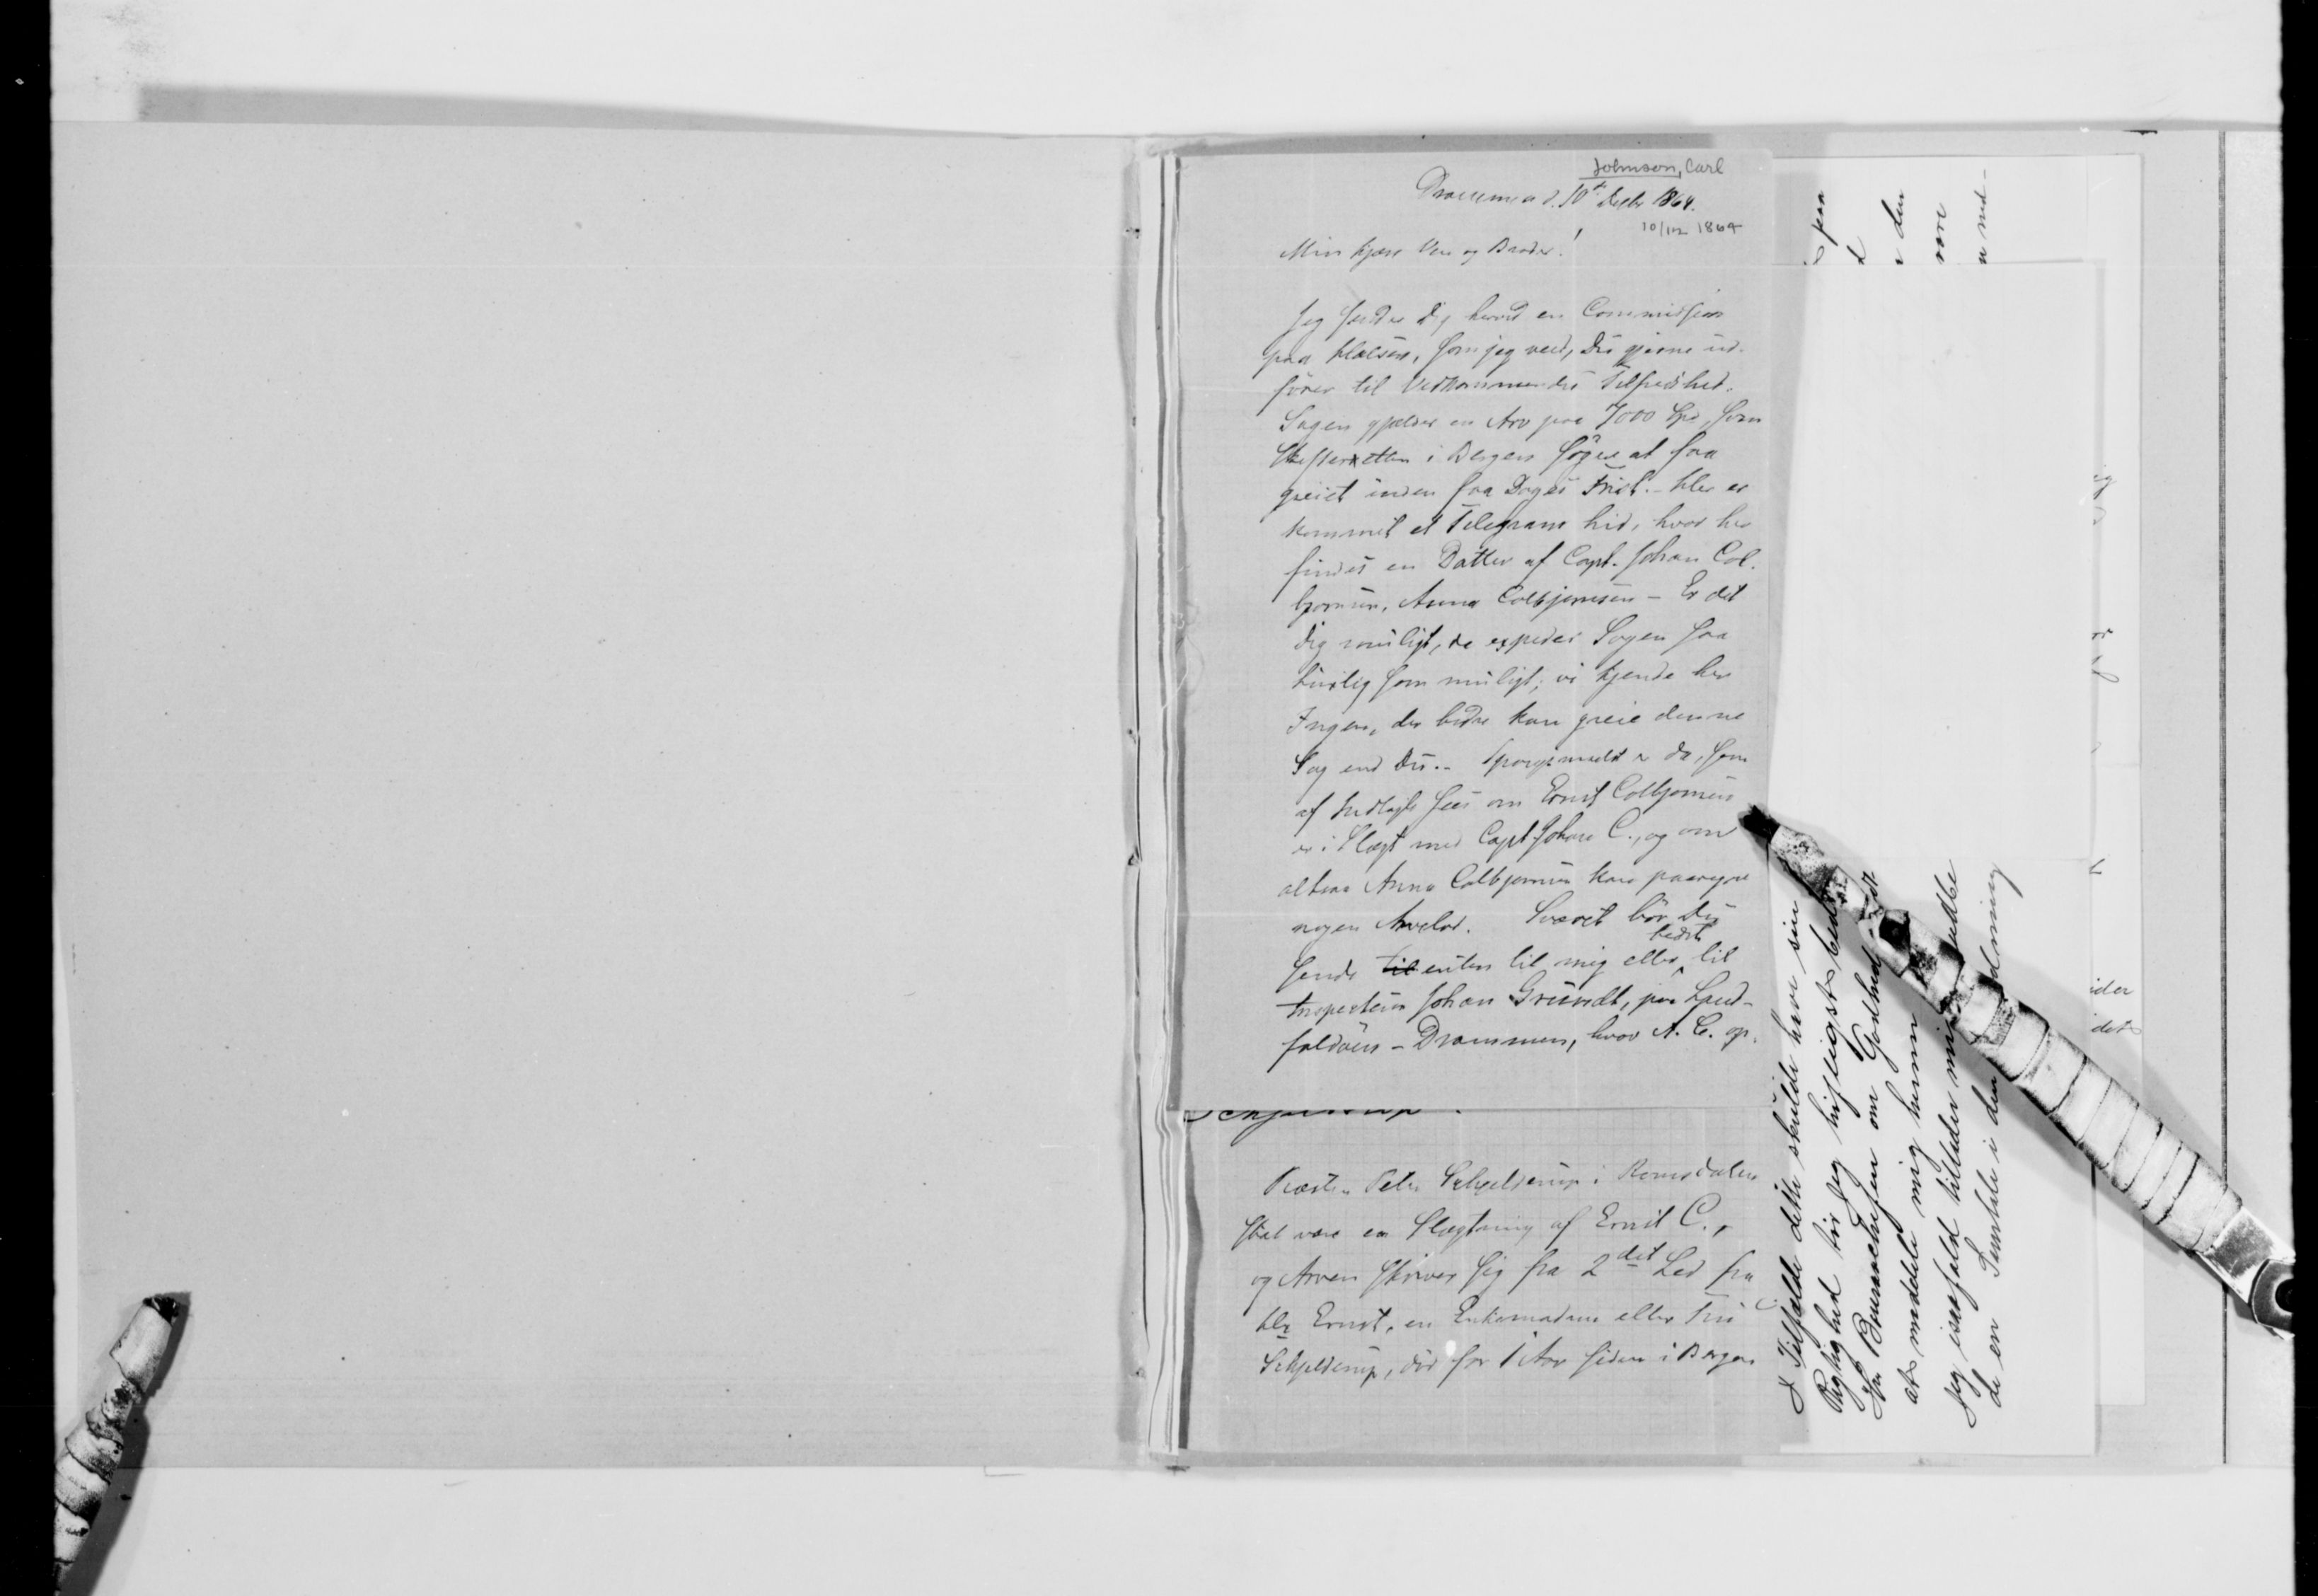 Johnson, Carl
Drammen d. 10de Decbr 1864.
10/12 1864
Min kjære Ven og Broder!
Jeg sender Dig herved en Commission
paa Halsen, som jeg veed, Du gjerne ud-
fører til Vedkommendes Tilfredshed.
Sagen gjælder en Arv paa 7000 Spd, som
Skifteretten i Bergen søger at faa
greiet inden faa Dages Frist. - Her er
kommet et Telegram hid, hvor her
findes en Datter af Capt. Johan Col-
bjørnsen, Anna Colbjørnsen - Er det
Dig muligt, da expeder Sagen saa
hurtig som muligt; vi kjende her
Ingen, der bedre kan greie denne
Sag end Du. - Spørgsmaalet er da, som
af Indlagte sees om Ernst Colbjørnsen
er i Slægt med Capt Johan C., og om
altsaa Anna Colbjørnsen kan paaregne
nogen Arvelod. Svaret bør Du
sende til enten til mig eller bedst til
Inspecteur Johan Grundt, paa Land-
faldøen - Drammen, hvor A. C. op-
Præsten Peter Schjelderup i Romsdalen
skal være en Slægtning af Ernst C.,
og Arven skriver sig fra 2det Led fra
Hr Ernst, en Enkemadam eller Fru
Schjelderup, død for 1 Aar siden i Bergen
I Tilfælde dette skulde have sin
Rigtighed tør jeg høfligst bede
Hr Bureauchefen om Godhed
at meddele mig hermed
Jeg isaafald tillader mig
de en Stamtavle i den
paa
den
være
ider
det